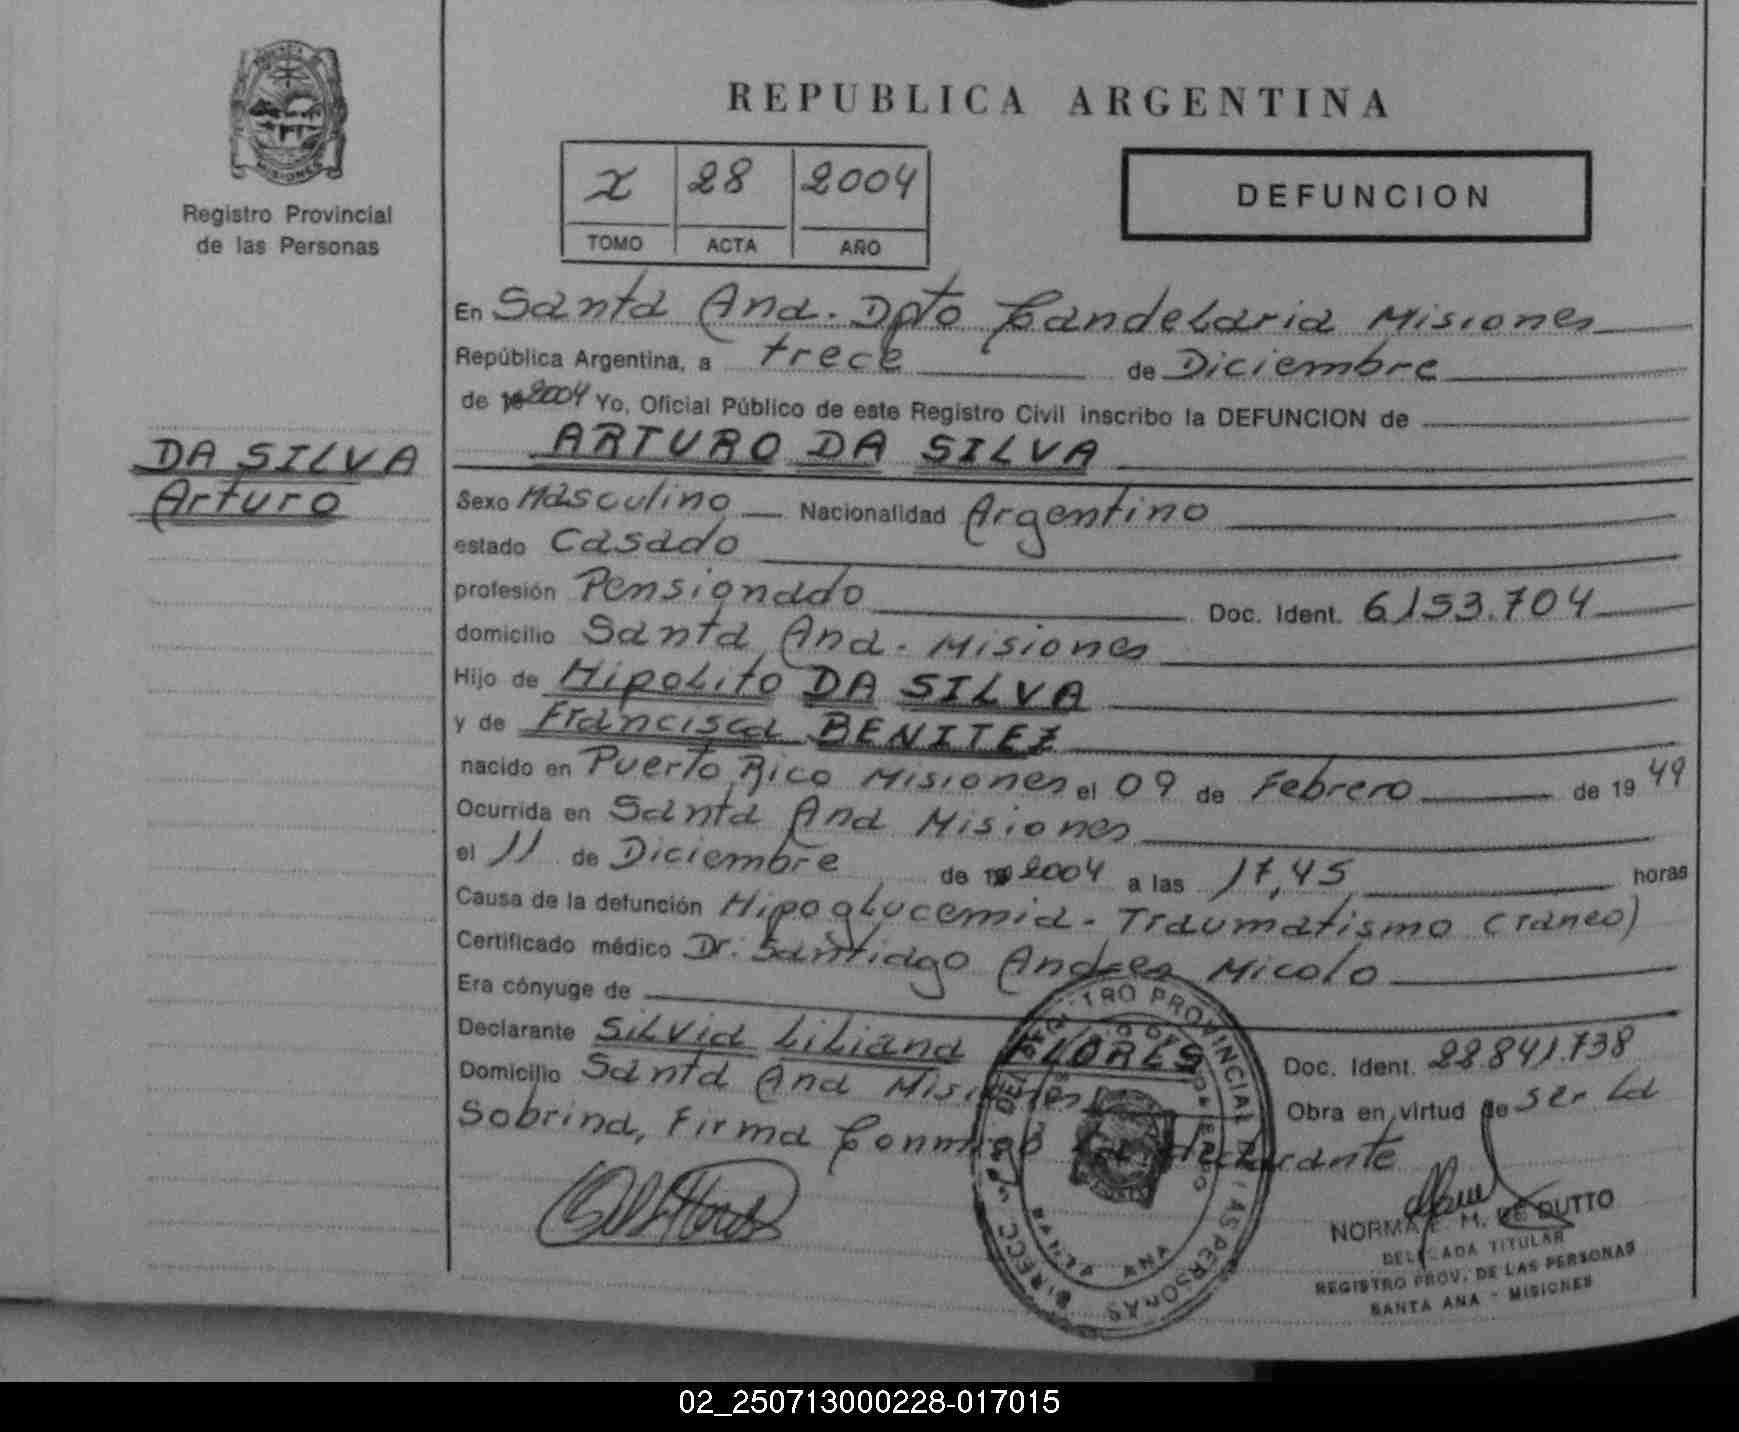 PROVINCIA
MISIONES
Registro Provincial
de las Personas
DA SILVA
Arturo
REPUBLICA ARGENTINA
X 28 2004
TOMO ACTA AÑO
DEFUNCION
En Santa Ana. Dpto Candelaria Misiones
República Argentina, a trece de Diciembre
de 2004 Yo, Oficial Público de este Registro Civil inscribo la DEFUNCION de
ARTURO DA SILVA
Sexo Masculino Nacionalidad Argentino
estado Casado
profesión Pensionado Doc. Ident. 6.153.704
domicilio Santa Ana. Misiones
Hijo de Hipolito DA SILVA
y de Francisca BENITEZ
nacido en Puerto Rico Misiones el 09 de Febrero de 1949
Ocurrida en Santa Ana Misiones
el 11 de Diciembre de 2004 a las 17,45 horas
Causa de la defunción Hipoglucemia - Traumatismo Craneo)
Certificado médico Dr. Santiago Andres Micolo
Era cónyuge de
Declarante Silvia Liliana FLORES Doc. Ident. 28.841.738
Domicilio Santa Ana Misiones Obra en virtud de ser la
Sobrina, Firma Conmigo la declarante
NORMA E. M. DE DUTTO
DELEGADA TITULAR
REGISTRO PROV. DE LAS PERSONAS
SANTA ANA - MISIONES
SANTA ANA
02_250713000228-017015